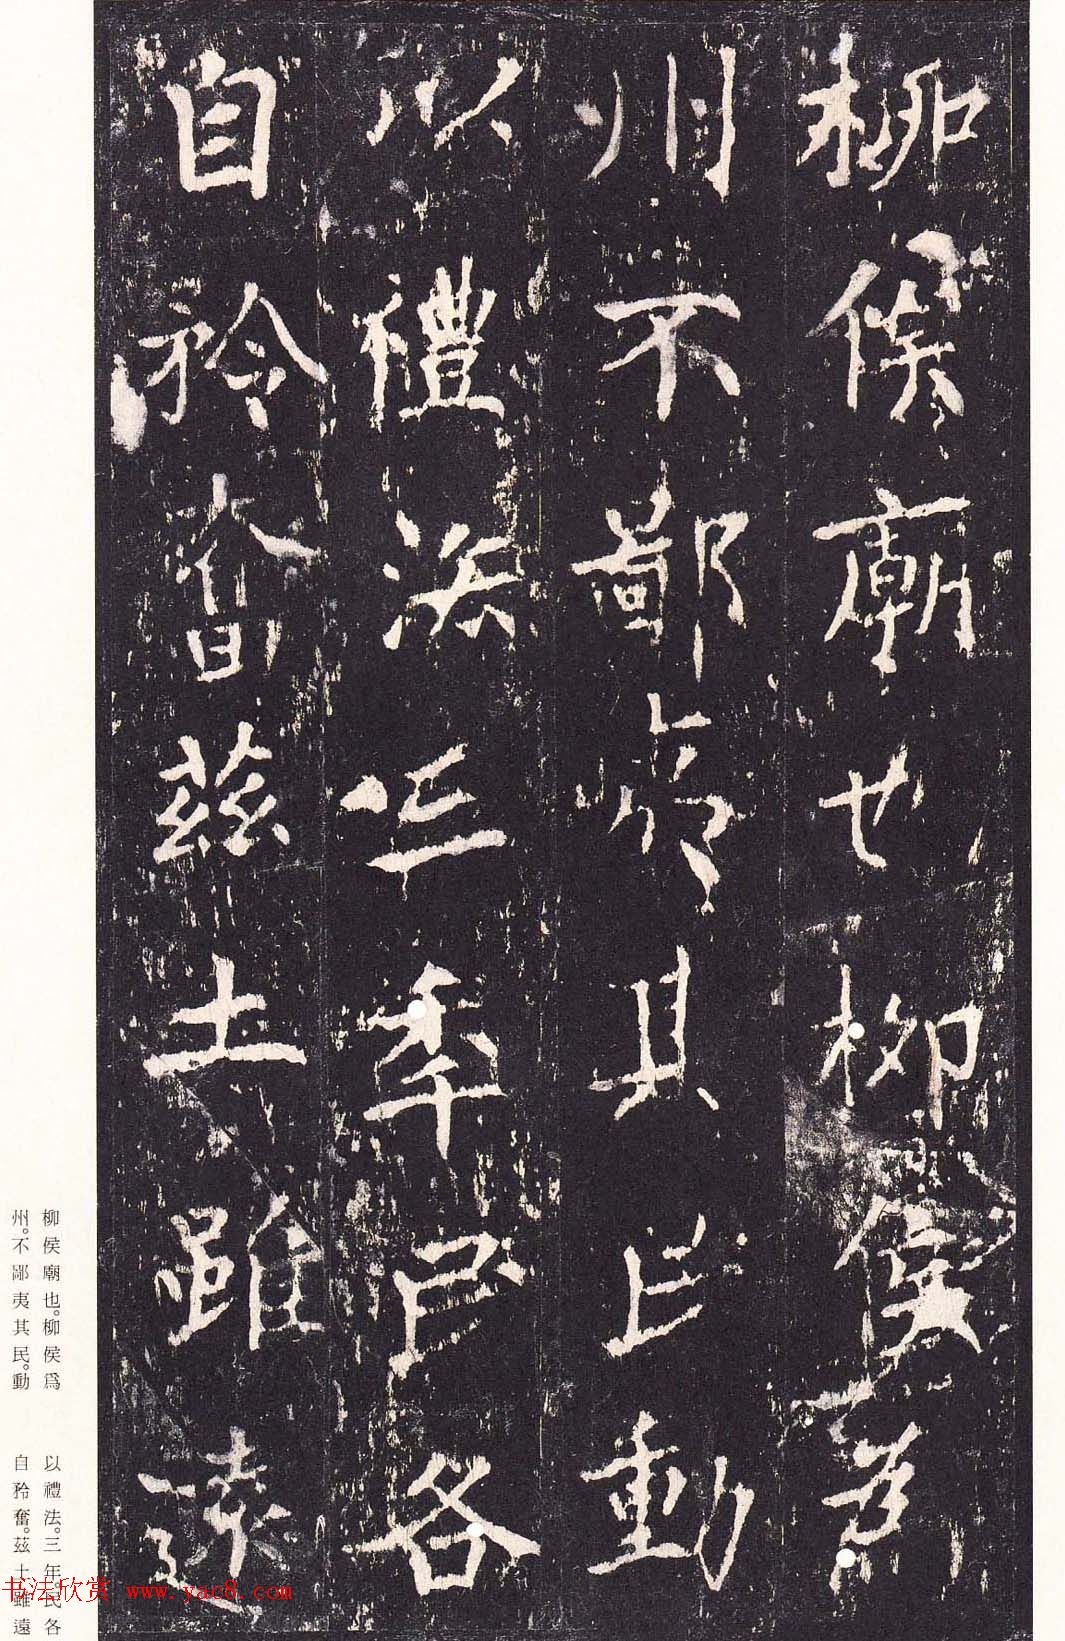 柳侯廟也柳侯為
州不鄙夷其民動
以禮法三年民各
自矜奮茲土雖遠
柳侯廟也。柳侯爲
州。不鄙夷其民。動
以禮法。三年。民各
自矜奮。茲土雖遠
书法欣赏 www.yac8.com